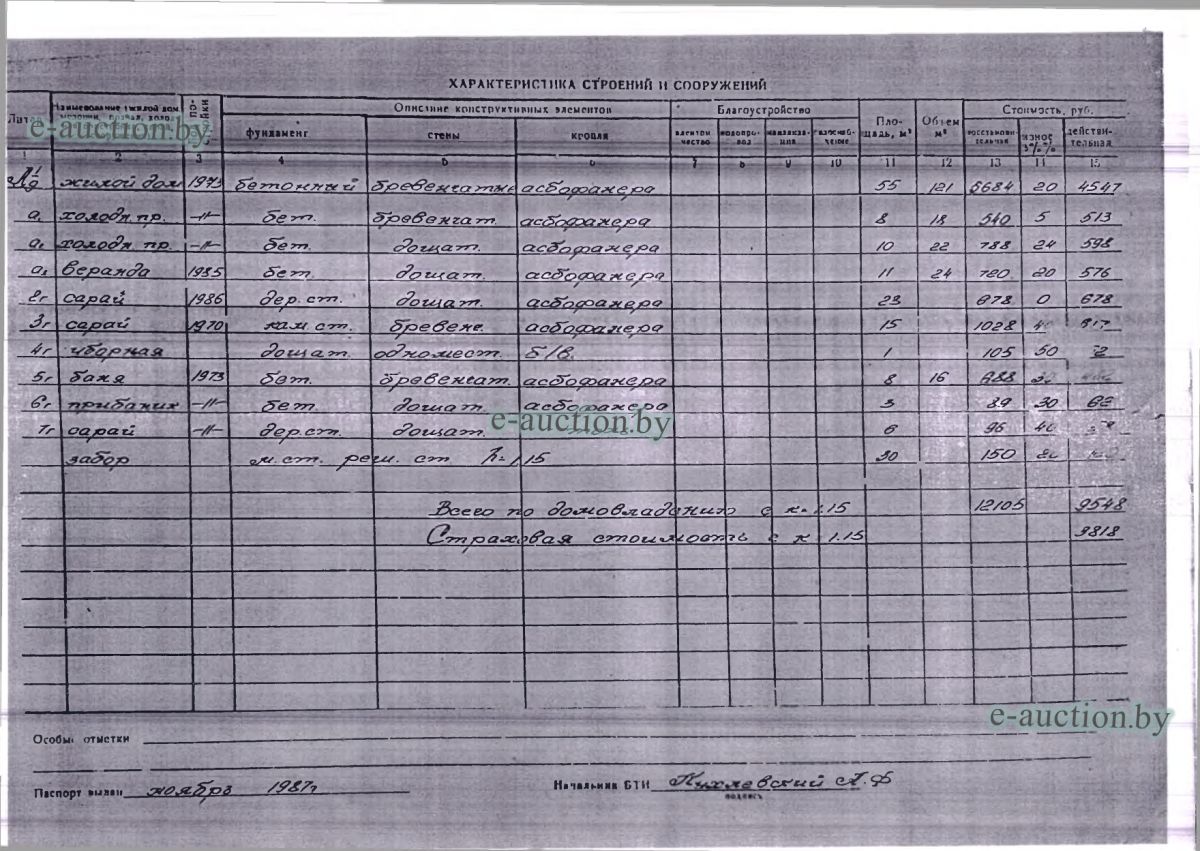 ХАРАКТЕРИСТИКА СТРОЕНИЙ И СООРУЖЕНИЙ
Описание конструктивных элементов Благоустройство Стоимость, руб.
фундамент стены кровля Пло- щадь, м² Объем м³ износ % действи- тельная
1 2 3 4 5 6 7 8 9 10 11 12 13 14 15
жилой дом 1973 бетонный бревенчатые асбофанера 55 121 5684 20 4547
а₁ холодн. пр. —"— бет. бревенчат. асбофанера 8 18 540 5 513
холодн. пр. —"— бет. дощат. асбофанера 10 22 788 24 598
веранда 1985 бет. дощат. асбофанера 11 24 720 20 576
2г сарай 1986 дер.ст. дощат. асбофанера 23 678 0 678
3г сарай 1970 кам.ст. бревенч. асбофанера 15 1028
4г уборная дощат. одномест. б/в. 1 105 50
5г баня 1973 бет. бревенчат. асбофанера 8 16 688
6г прибаник —"— бет. дощат. асбофанера 5 89 30 62
7г сарай —"— дер.ст. дощат. 6 96
забор м.ст. реш. ст h=1,15 30 150
Всего по домовладению с к. 1.15 12105 9548
Страховая стоимость с к 1.15 9818
Особые отметки
Паспорт выдан ноябрь 1987г Начальник БТИ А.Ф
подпись
e-auction.by
e-auction.by
e-auction.by